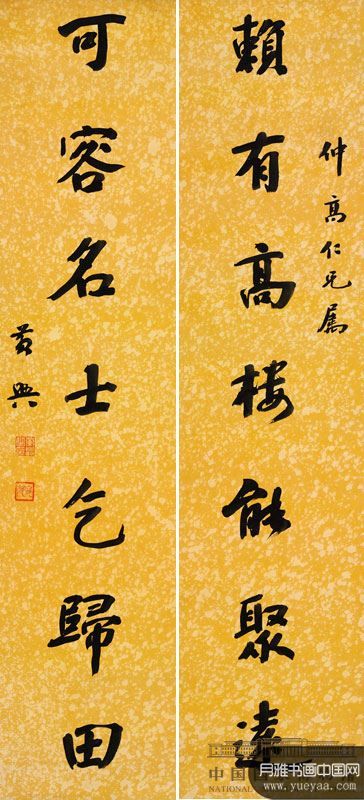 仲高仁兄属
賴有高楼能聚遠
可容名士乞歸田
黄興
中国
NATIONAL
月雅书画中国网
www.yueyaa.com